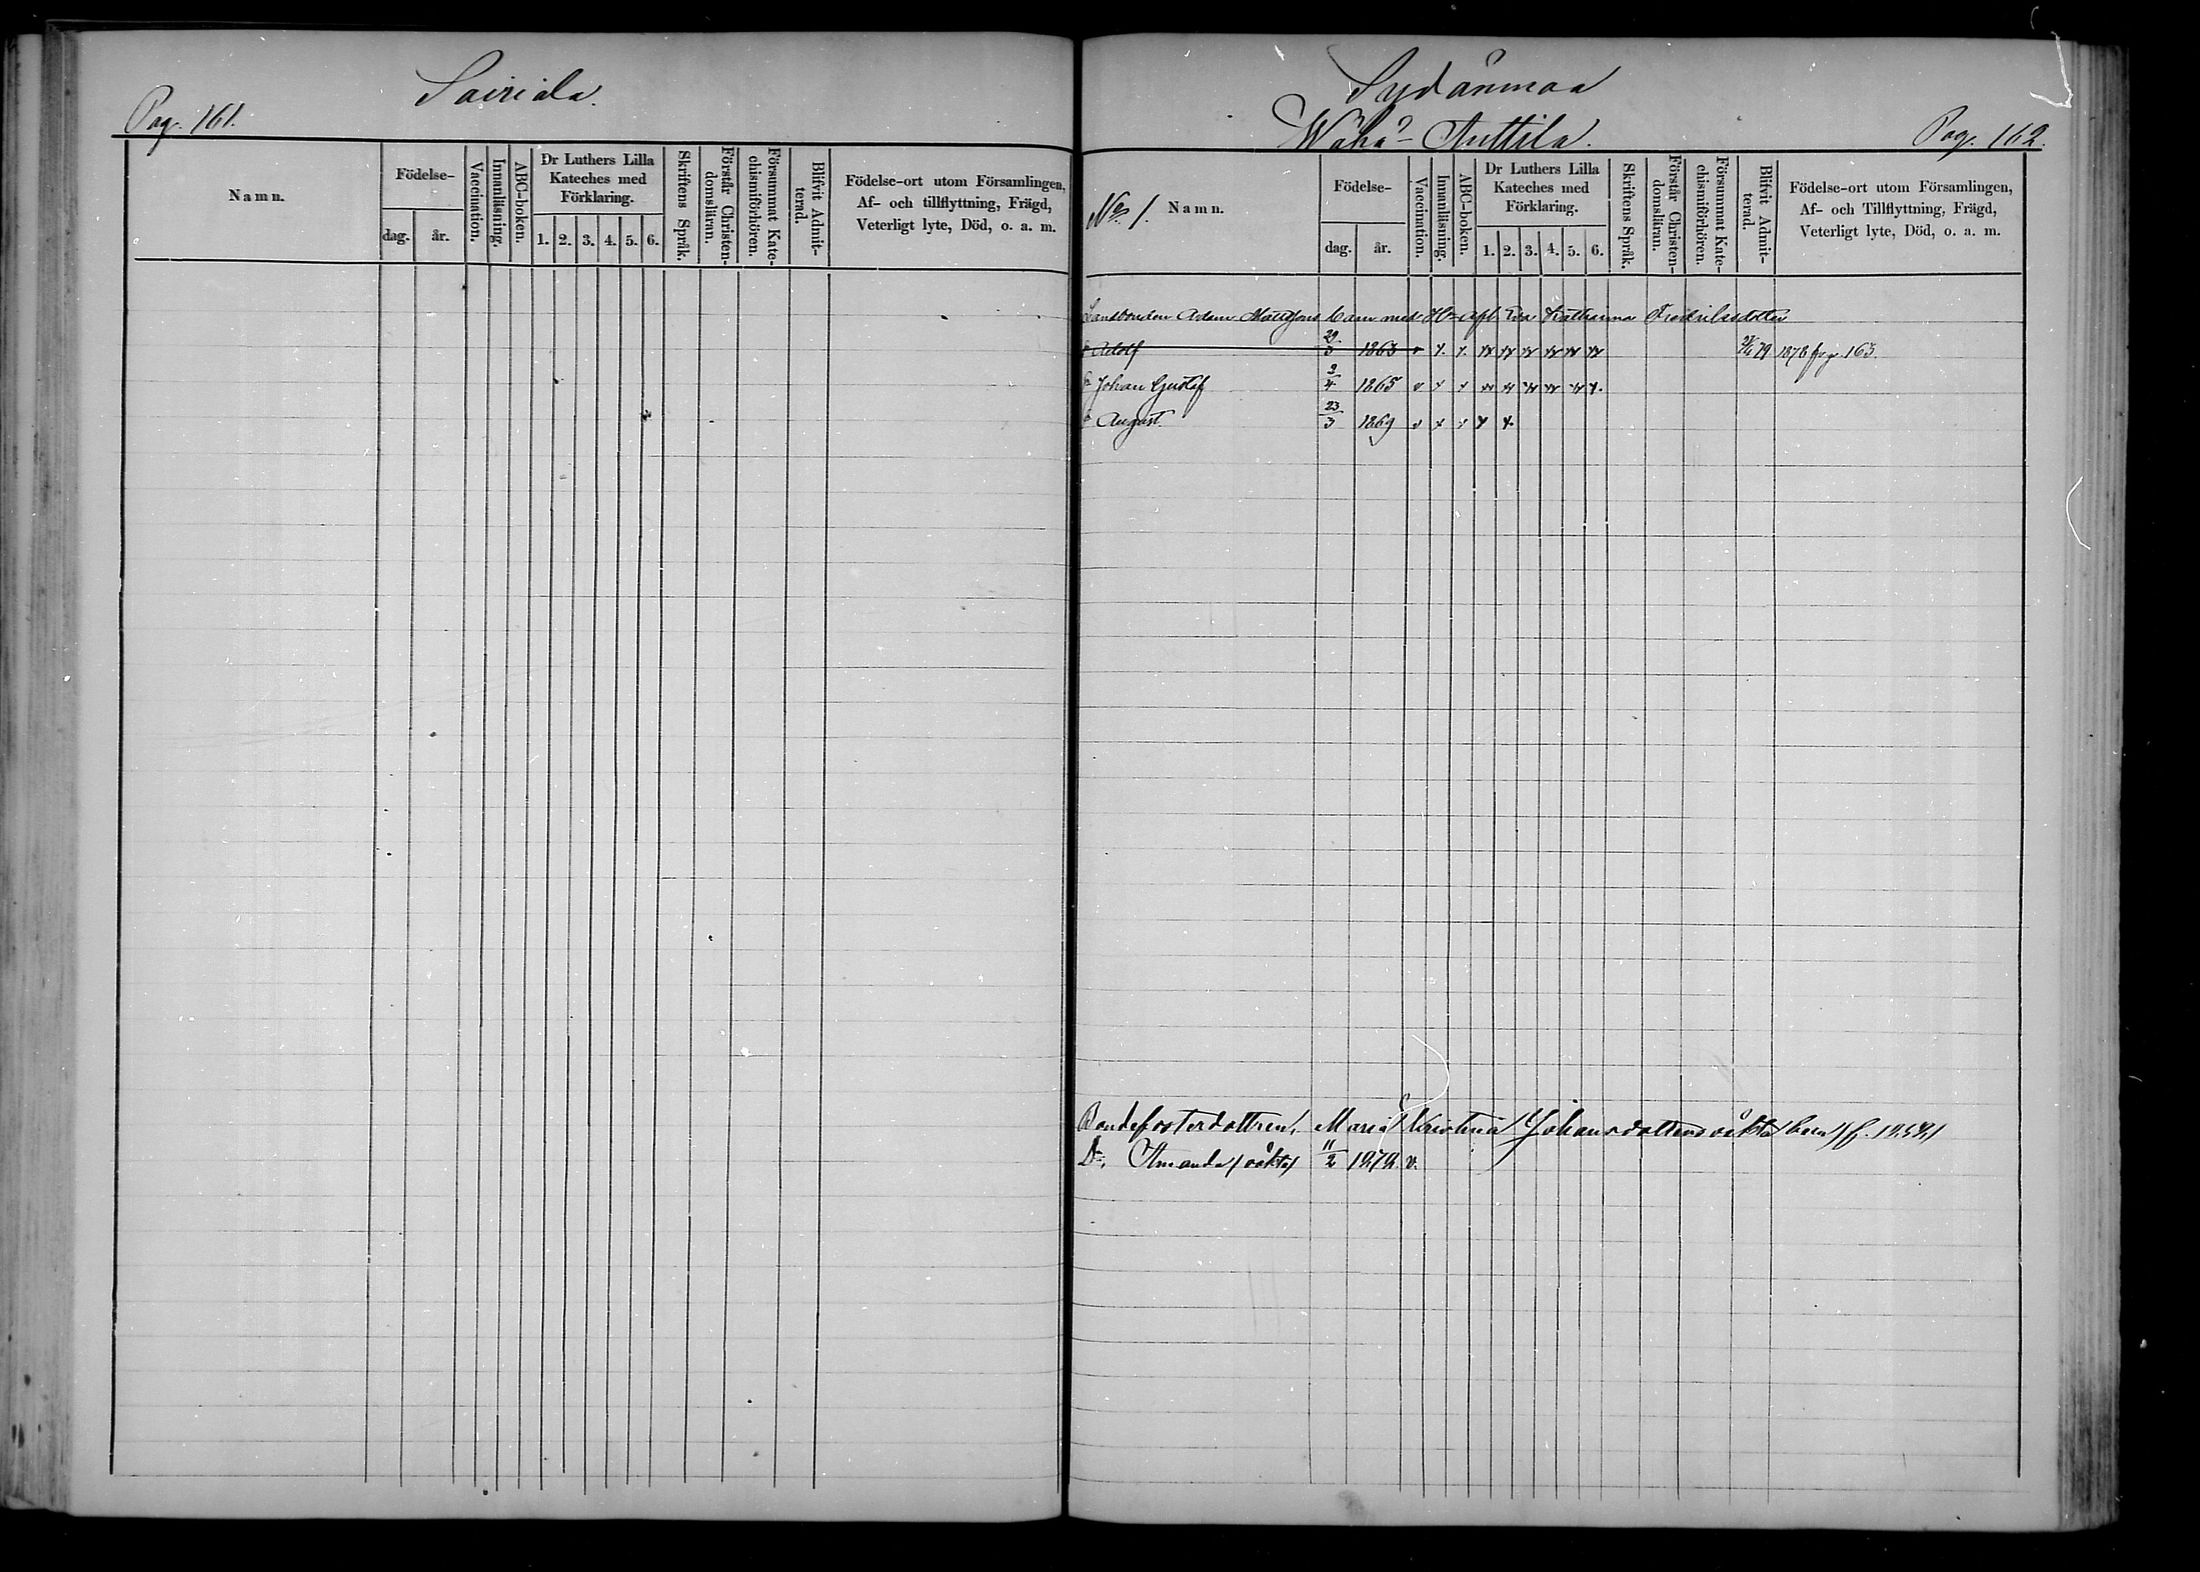 Pag. 161.
Sairiala.
Namn.
Födelse-
dag.
år.
Vaccination.
Innanläsning.
ABC-boken.
Dr Luthers Lilla
Kateches med
Förklaring.
1. 2. 3. 4. 5. 6.
Skriftens Språk.
Förstår Christen-
domsläran.
Försummat Kate-
chismiförhören.
Blifvit Admit-
terad.
Födelse-ort utom Församlingen,
Af- och tillflyttning, Frägd,
Veterligt lyte, Död, o. a. m.
Sydänmaa
Wähä-Anttila.
Pag. 162.
No 1.
Namn.
Födelse-
dag.
år.
Vaccination.
Innanläsning.
ABC-boken.
Dr Luthers Lilla
Kateches med
Förklaring.
1. 2. 3. 4. 5. 6.
Skriftens Språk.
Förstår Christen-
domsläran.
Försummat Kate-
chismiförhören.
Blifvit Admit-
terad.
Födelse-ort utom Församlingen,
Af- och Tillflyttning, Frägd,
Veterligt lyte, Död, o. a. m.
Landbonden Adam Mattssons barn med H. afl. Eva Katharina Fredriksdotter
Adolf 29/3 1863 79 1878 fr. p. 163.
Johan Gustaf 3/4 1865
August 23/3 1869
Bondefosterdottren, Maria Kristina Johansdotters oäkta barn
D:r Amanda (oäkta) 11/2 1879. v.